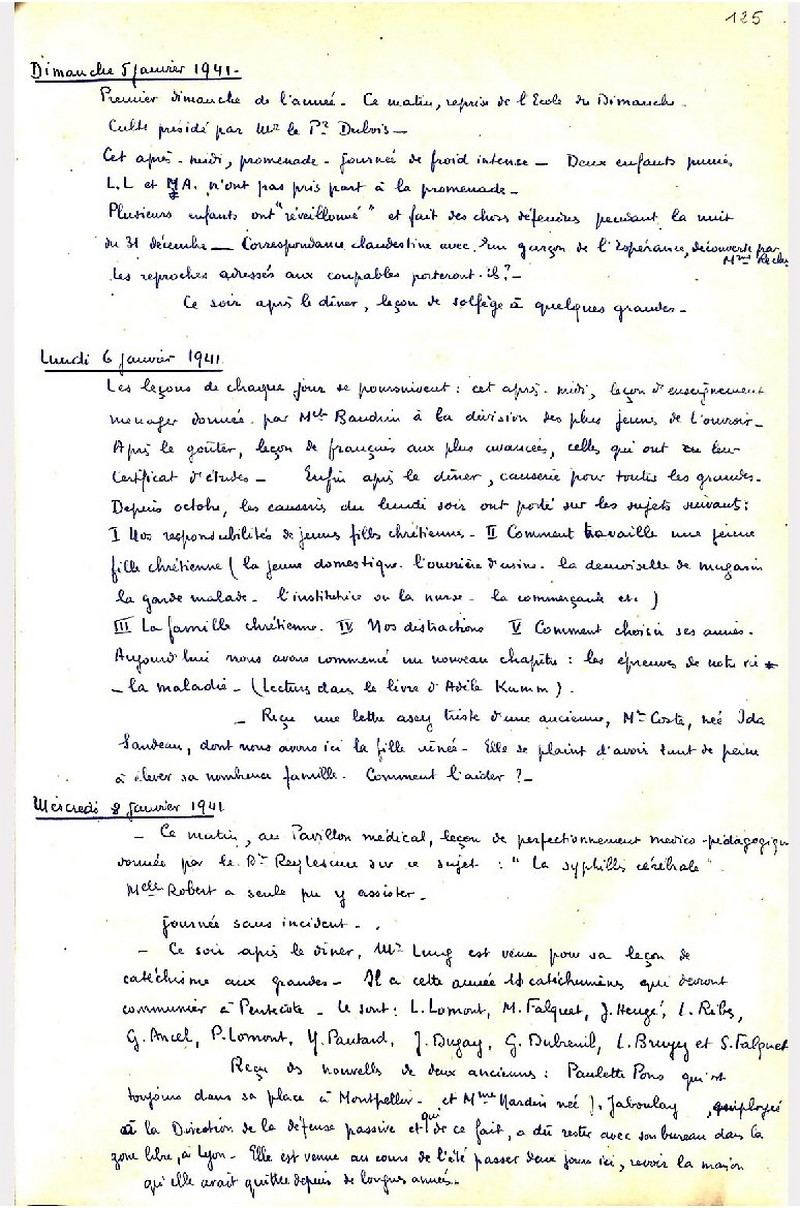 125
Dimanche 5 Janvier 1941-
Premier dimanche de l'année - Ce matin, reprise de l'Ecole du Dimanche.
Culte présidé par Mr le Pr Dubois -
Cet après-midi, promenade - journée de froid intense - Deux enfants punies
L.L et M A. n'ont pas pris part à la promenade -
Plusieurs enfants ont "réveillonné" et fait des choses défendues pendant la nuit
du 31 décembre - Correspondance clandestine avec un garçon de l'Espérance, découverte par
Mme
Les reproches adressés aux coupables porteront-ils? -
Ce soir après le dîner, leçon de solfège à quelques grandes -
Lundi 6 janvier 1941
Les leçons de chaque jour se poursuivent : cet après-midi, leçon d'enseignement
ménager donnée par Melle Baudrin à la division des plus jeunes de l'ouvroir -
Après le goûter, leçon de français aux plus avancées, celles qui ont eu leur
Certificat d'études - Enfin après le dîner, causerie pour toutes les grandes -
Depuis octobre, les causeries du lundi soir ont porté sur les sujets suivants :
I Nos responsabilités de jeunes filles chrétiennes - II Comment travaille une jeune
fille chrétienne ( la jeune domestique - l'ouvrière d'usine - la demoiselle de magasin
la garde malade - l'institutrice ou la nurse - la commerçante etc )
III La famille chrétienne. IV Nos distractions V Comment choisir ses amies.
Aujourd'hui nous avons commencé un nouveau chapitre : les épreuves de notre vie
- la maladie - (Lectures dans le livre d'Adèle Kamm).
- Reçu une lettre assez triste d'une ancienne, Me Coste, née Ida
Sandeau, dont nous avons ici la fille aînée - Elle se plaint d'avoir tant de peine
à élever sa nombreuse famille. Comment l'aider ? -
Mercredi 8 Janvier 1941
- Ce matin, au Pavillon médical, leçon de perfectionnement médico-pédagogique
donnée par le Dr sur ce sujet : "La syphilis cérébrale"
Melle Robert a seule pu y assister -
Journée sans incident -
- Ce soir après le dîner, Mr Lung est venu pour sa leçon de
catéchisme aux grandes - Il a cette année 11 catéchumènes qui devront
communier à Pentecôte - Ce sont : L. Lomont, M. Falquet, J. Heugé, L. Ribes,
G. Ancel, P. Lomont, Y. Pautard, J. Dugay, G. Dubreuil, L. Bruyey et S. Falquet
Reçu des nouvelles de deux anciennes : Paulette Pons qui est
toujours dans sa place à Montpellier - et Mme Nardin née J. Jaboulay, employée
à la Direction de la défense passive et qui de ce fait, a dû rester avec son bureau dans la
zone libre, à Lyon - Elle est venue au cours de l'été passer deux jours ici, revoir la maison
qu'elle avait quittée depuis de longues années -